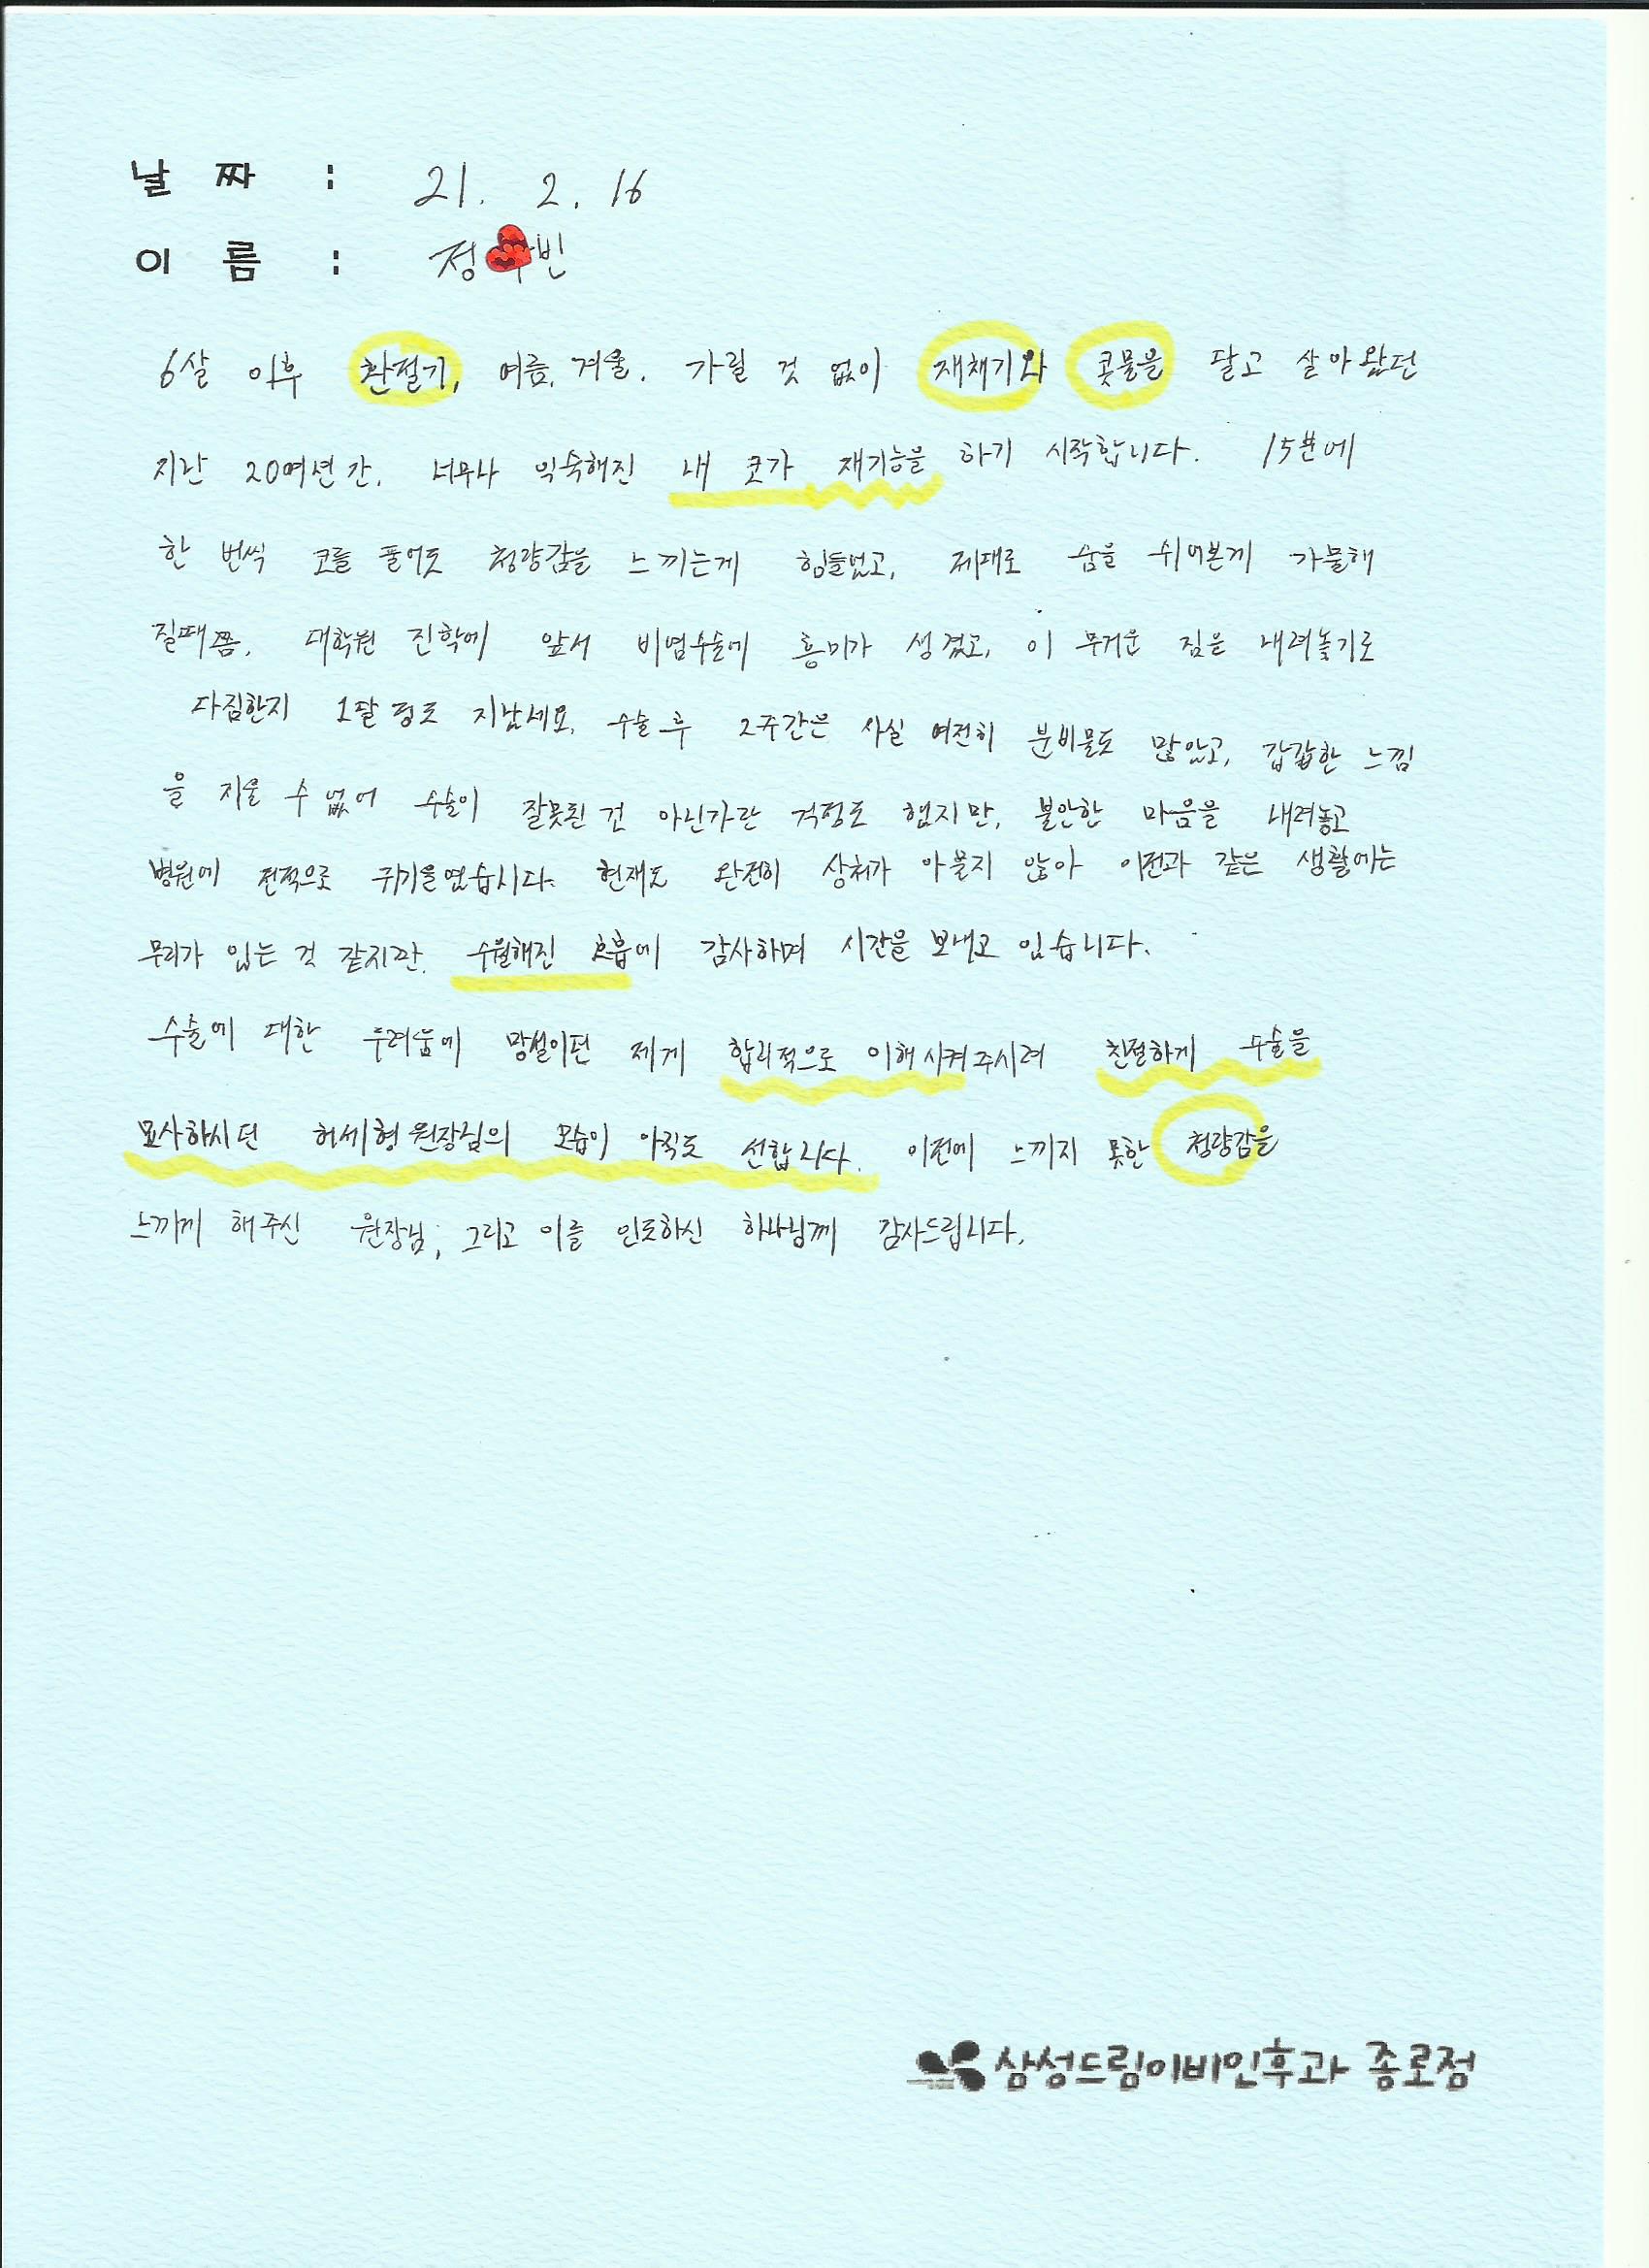 날 짜 : 21. 2. 16
이 름 : 정 빈
6살 이후 환절기, 여름, 겨울. 가릴 것 없이 재채기와 콧물을 달고 살아왔던
지난 20여년간, 너무나 익숙해진 내 코가 재기능을 하기 시작합니다. 15분에
한 번씩 코를 풀어도 청량감을 느끼는게 힘들었고, 제대로 숨을 쉬어본게 가물해
질때쯤, 대학원 진학에 앞서 비염수술에 흥미가 생겼고, 이 무거운 짐을 내려놓기로
다짐한지 1달 정도 지났네요. 수술 후 2주간은 사실 여전히 분비물도 많았고, 갑갑한 느낌
을 지울 수 없어 수술이 잘못된 건 아닌가란 걱정도 했지만, 불안한 마음을 내려놓고
병원에 전적으로 귀기울였습니다. 현재도 완전히 상처가 아물지 않아 이전과 같은 생활에는
무리가 있는 것 같지만, 수월해진 호흡에 감사하며 시간을 보내고 있습니다.
수술에 대한 두려움에 망설이던 제게 합리적으로 이해시켜주시려 친절하게 수술을
묘사하시던 허세형 원장님의 모습이 아직도 선합니다. 이전에 느끼지 못한 청량감을
느끼게 해주신 원장님, 그리고 이를 인도하신 하나님께 감사드립니다.
삼성드림이비인후과 종로점